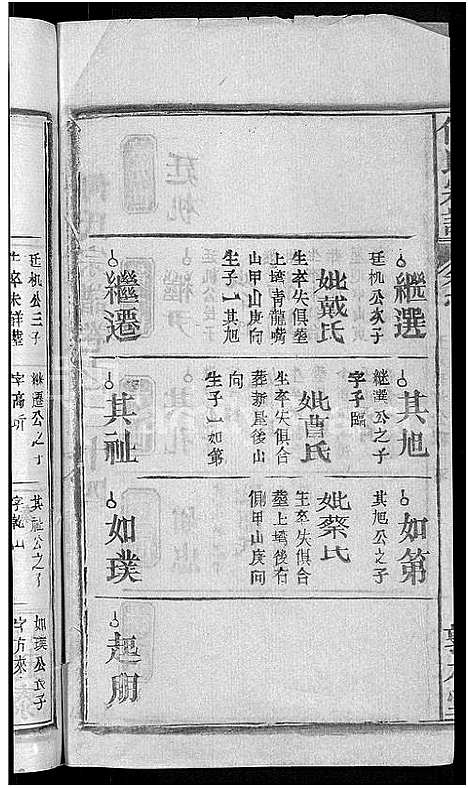 繼選
廷机公次子
妣戴氏
生卒失俱塟
上塆青龍嘴
山甲山庚向
生子一其旭
繼遷
其旭
繼選公之子
字子臨
妣曹氏
生卒失俱合
葬新屋後山
向
生子一如第
其祉
如第
其旭公之子
妣蔡氏
生卒失俱合
塟上塆後右
側甲山庚向
如璞
起朋
廷机公三子
生卒未詳塟
繼遷公之子
字高
其祉公之子
字乾山
如璞公次子
字方來